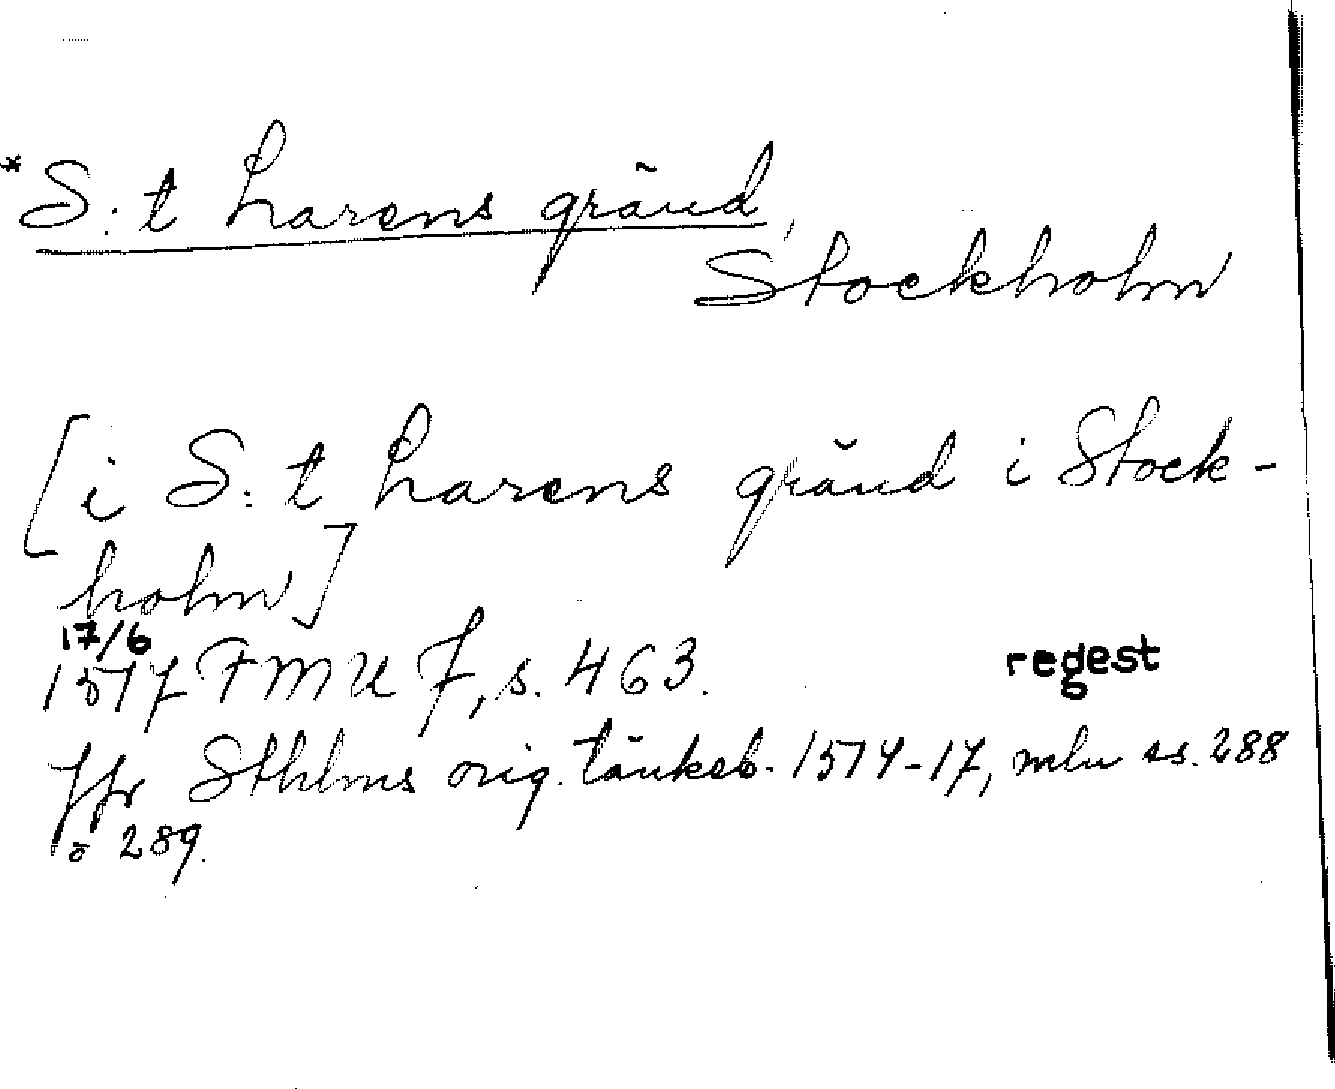 * S:t Larens gränd,
Stockholm
[i S:t Larens gränd i Stock-
holm]
17/6
1517 FMU 7, s. 463. regest
Jfr Sthlms orig. tänkeb. 1514-17, mlu ss. 288
o 289.